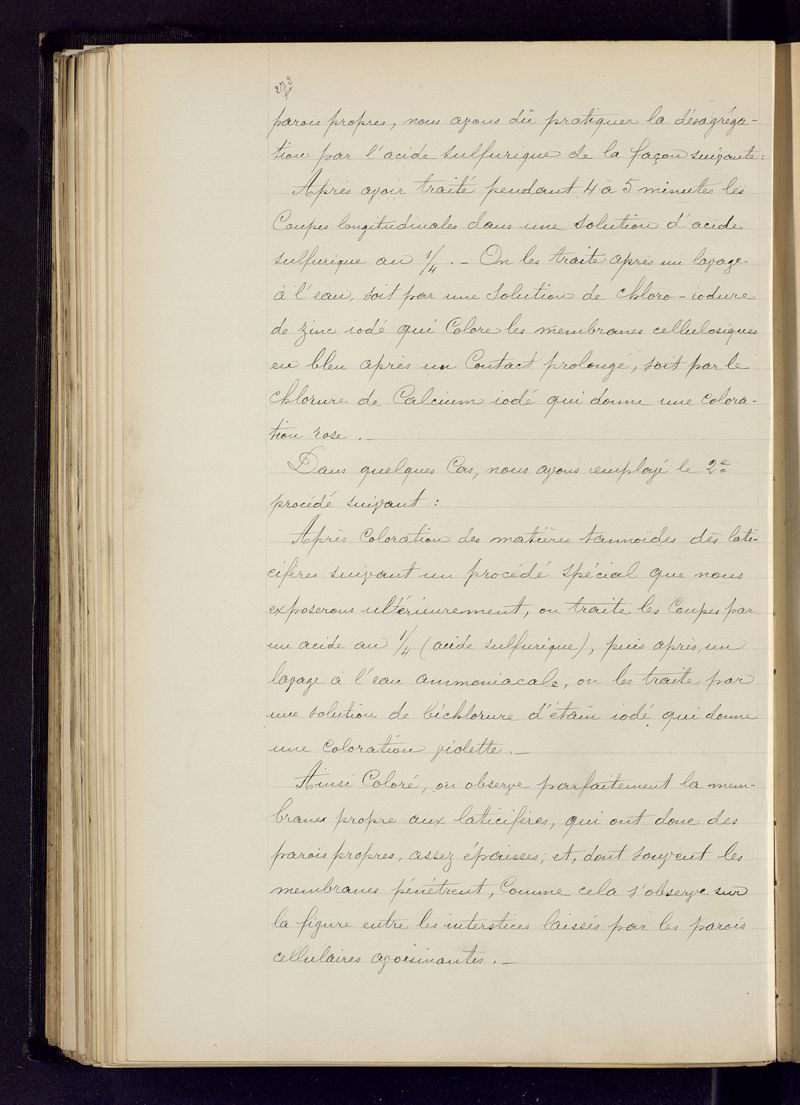 272
parois propres, nous avons dû pratiquer la désagréga-
tion par l'acide sulfurique de la façon suivante :
Après avoir traité pendant 4 à 5 minutes les
Coupes longitudinales dans une solution d'acide
sulfurique au 1/4 . — On les traite après un lavage
à l'eau, soit par une solution de chloro-iodure
de zinc iodé qui Colore les membranes cellulosiques
en bleu après un Contact prolongé, soit par le
chlorure de Calcium iodé qui donne une colora-
tion rose . —
Dans quelques Cas, nous avons employé le 2e
procédé suivant :
Après Coloration des matières tannoïdes des lati-
cifères suivant un procédé spécial que nous
exposerons ultérieurement, on traite les Coupes par
un acide au 1/4 (acide sulfurique), puis après, un
lavage à l'eau ammoniacale, on les traite par
une solution de bichlorure d'étain iodé qui donne
une coloration violette . —
Ainsi Coloré, on observe parfaitement la mem-
brane propre aux laticifères, qui ont donc des
parois propres, assez épaisses, et, dont souvent les
membranes pénètrent, Comme cela s'observe sur
la figure entre les interstices laissés par les parois
cellulaires avoisinantes . —